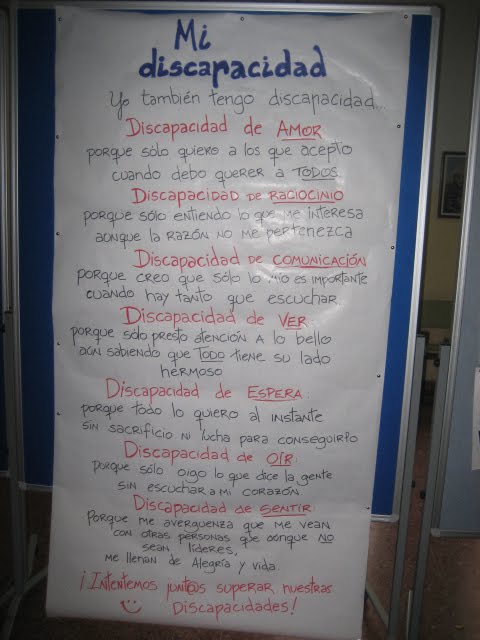 Mi
discapacidad
Yo también tengo discapacidad...
Discapacidad de AMOR
porque sólo quiero a los que acepto
cuando debo querer a TODOS
Discapacidad de RACIOCINIO
porque sólo entiendo lo que me interesa
aunque la RAZÓN NO ME PERTENEZCA
Discapacidad de COMUNICACIÓN
porque creo que sólo lo mío es importante
cuando hay tanto que escuchar
Discapacidad de VER
porque sólo presto atención a lo bello
aún sabiendo que TODO tiene su lado
hermoso
Discapacidad de ESPERA
porque todo lo quiero al instante
sin sacrificio ni lucha para conseguirlo
Discapacidad de OÍR
porque sólo oigo lo que dice la gente
sin escuchar a mi corazón
Discapacidad de SENTIR
Porque me averguenza que me vean
con otras personas que aunque NO
sean líderes,
me llenan de Alegría y vida
¡Intentemos junt@s superar nuestras
Discapacidades!